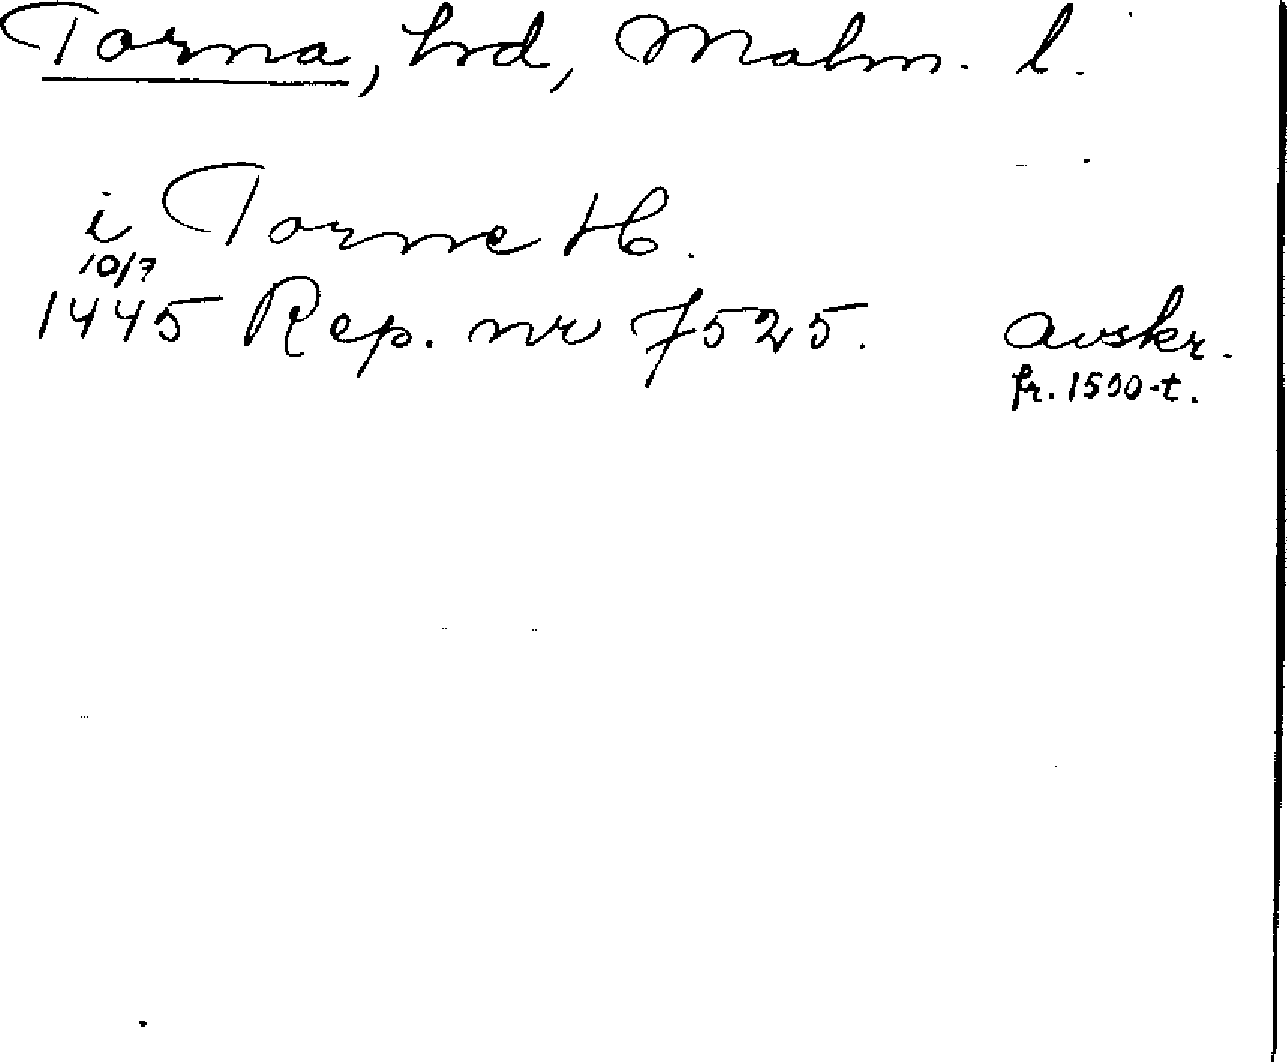 Torna, hrd, Malm. l.
i Torne H.
10/7
1445 Rep. nr 7525. avskr.
fr. 1500-t.